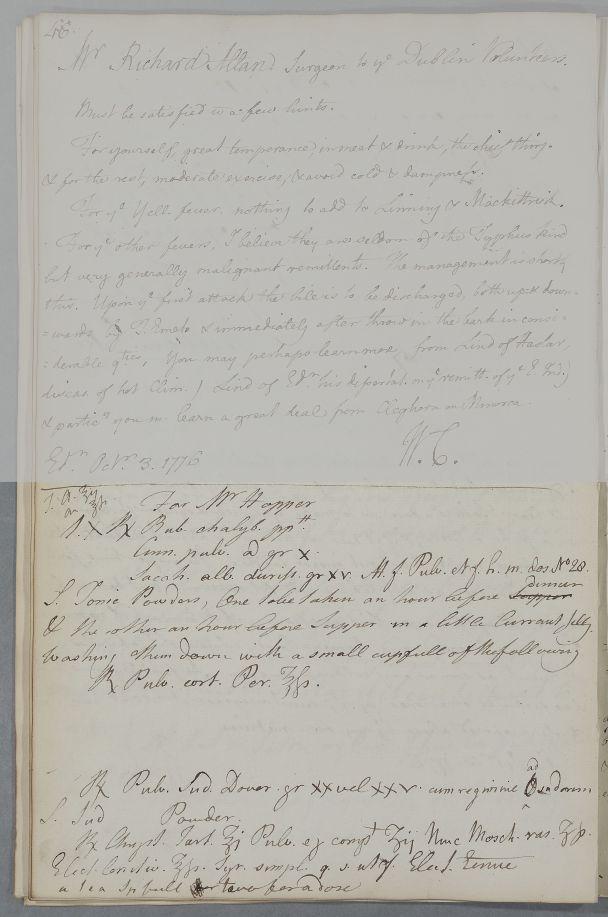 46.
Mr Richard Allan Surgeon to ye Dublin Volunteers.
Must be satisfied w a few hints.
For yourself, great temperance, in meat & drink, the chief thing.
& for the rest, moderate exercise, & avoid cold & dampness.
For ye Yell. fever. nothing to add to Linning & Mackittrick.
For ye other fevers, I believe they are seldom of the Typhus kind
but very generally malignant remittents. The management is shortly
this. Upon ye first attack the bile is to be discharged, both up & down-
=wards by T. Emet. & immediately after throw in the bark in consi-
=derable qties, You may perhaps learn more from Lind of Haslar,
diseas. of hot Clim. / Lind of Edr his dissertat. on ye remitt. of ye E. Ind.)
& particly you m. learn a great deal from Cleghorn on Minorca
Edr. Octr. 3. 1776
W. C.
For Mr Hopper
1. X ℞ Rub. chalyb. pptt
Cinn. pulv. a gr x.
Sacch. alb. duriss. gr xv. M. f. Pulv. & f. h. m. dos No 28.
S. Tonic Powders, One to be taken an hour before supper dinner
& the other an hour before supper in a little Currant Jelly
washing them down with a small cupfull of the following
℞ Pulv. cort. Per. ℥fs.
℞ Pulv. Sud. Dover. gr xx vel xxv. cum regimine ad sudorem
S. Sud Powder.
℞ Chryst. Tart. ʒj Pulv. e comp ʒij Nuc Mosch. ras. ʒfs.
Elect. Lenitiv. ℥fs. Syr. simpl. q. s. ut f. Elect. tenue
a tea spfull or two for a dose